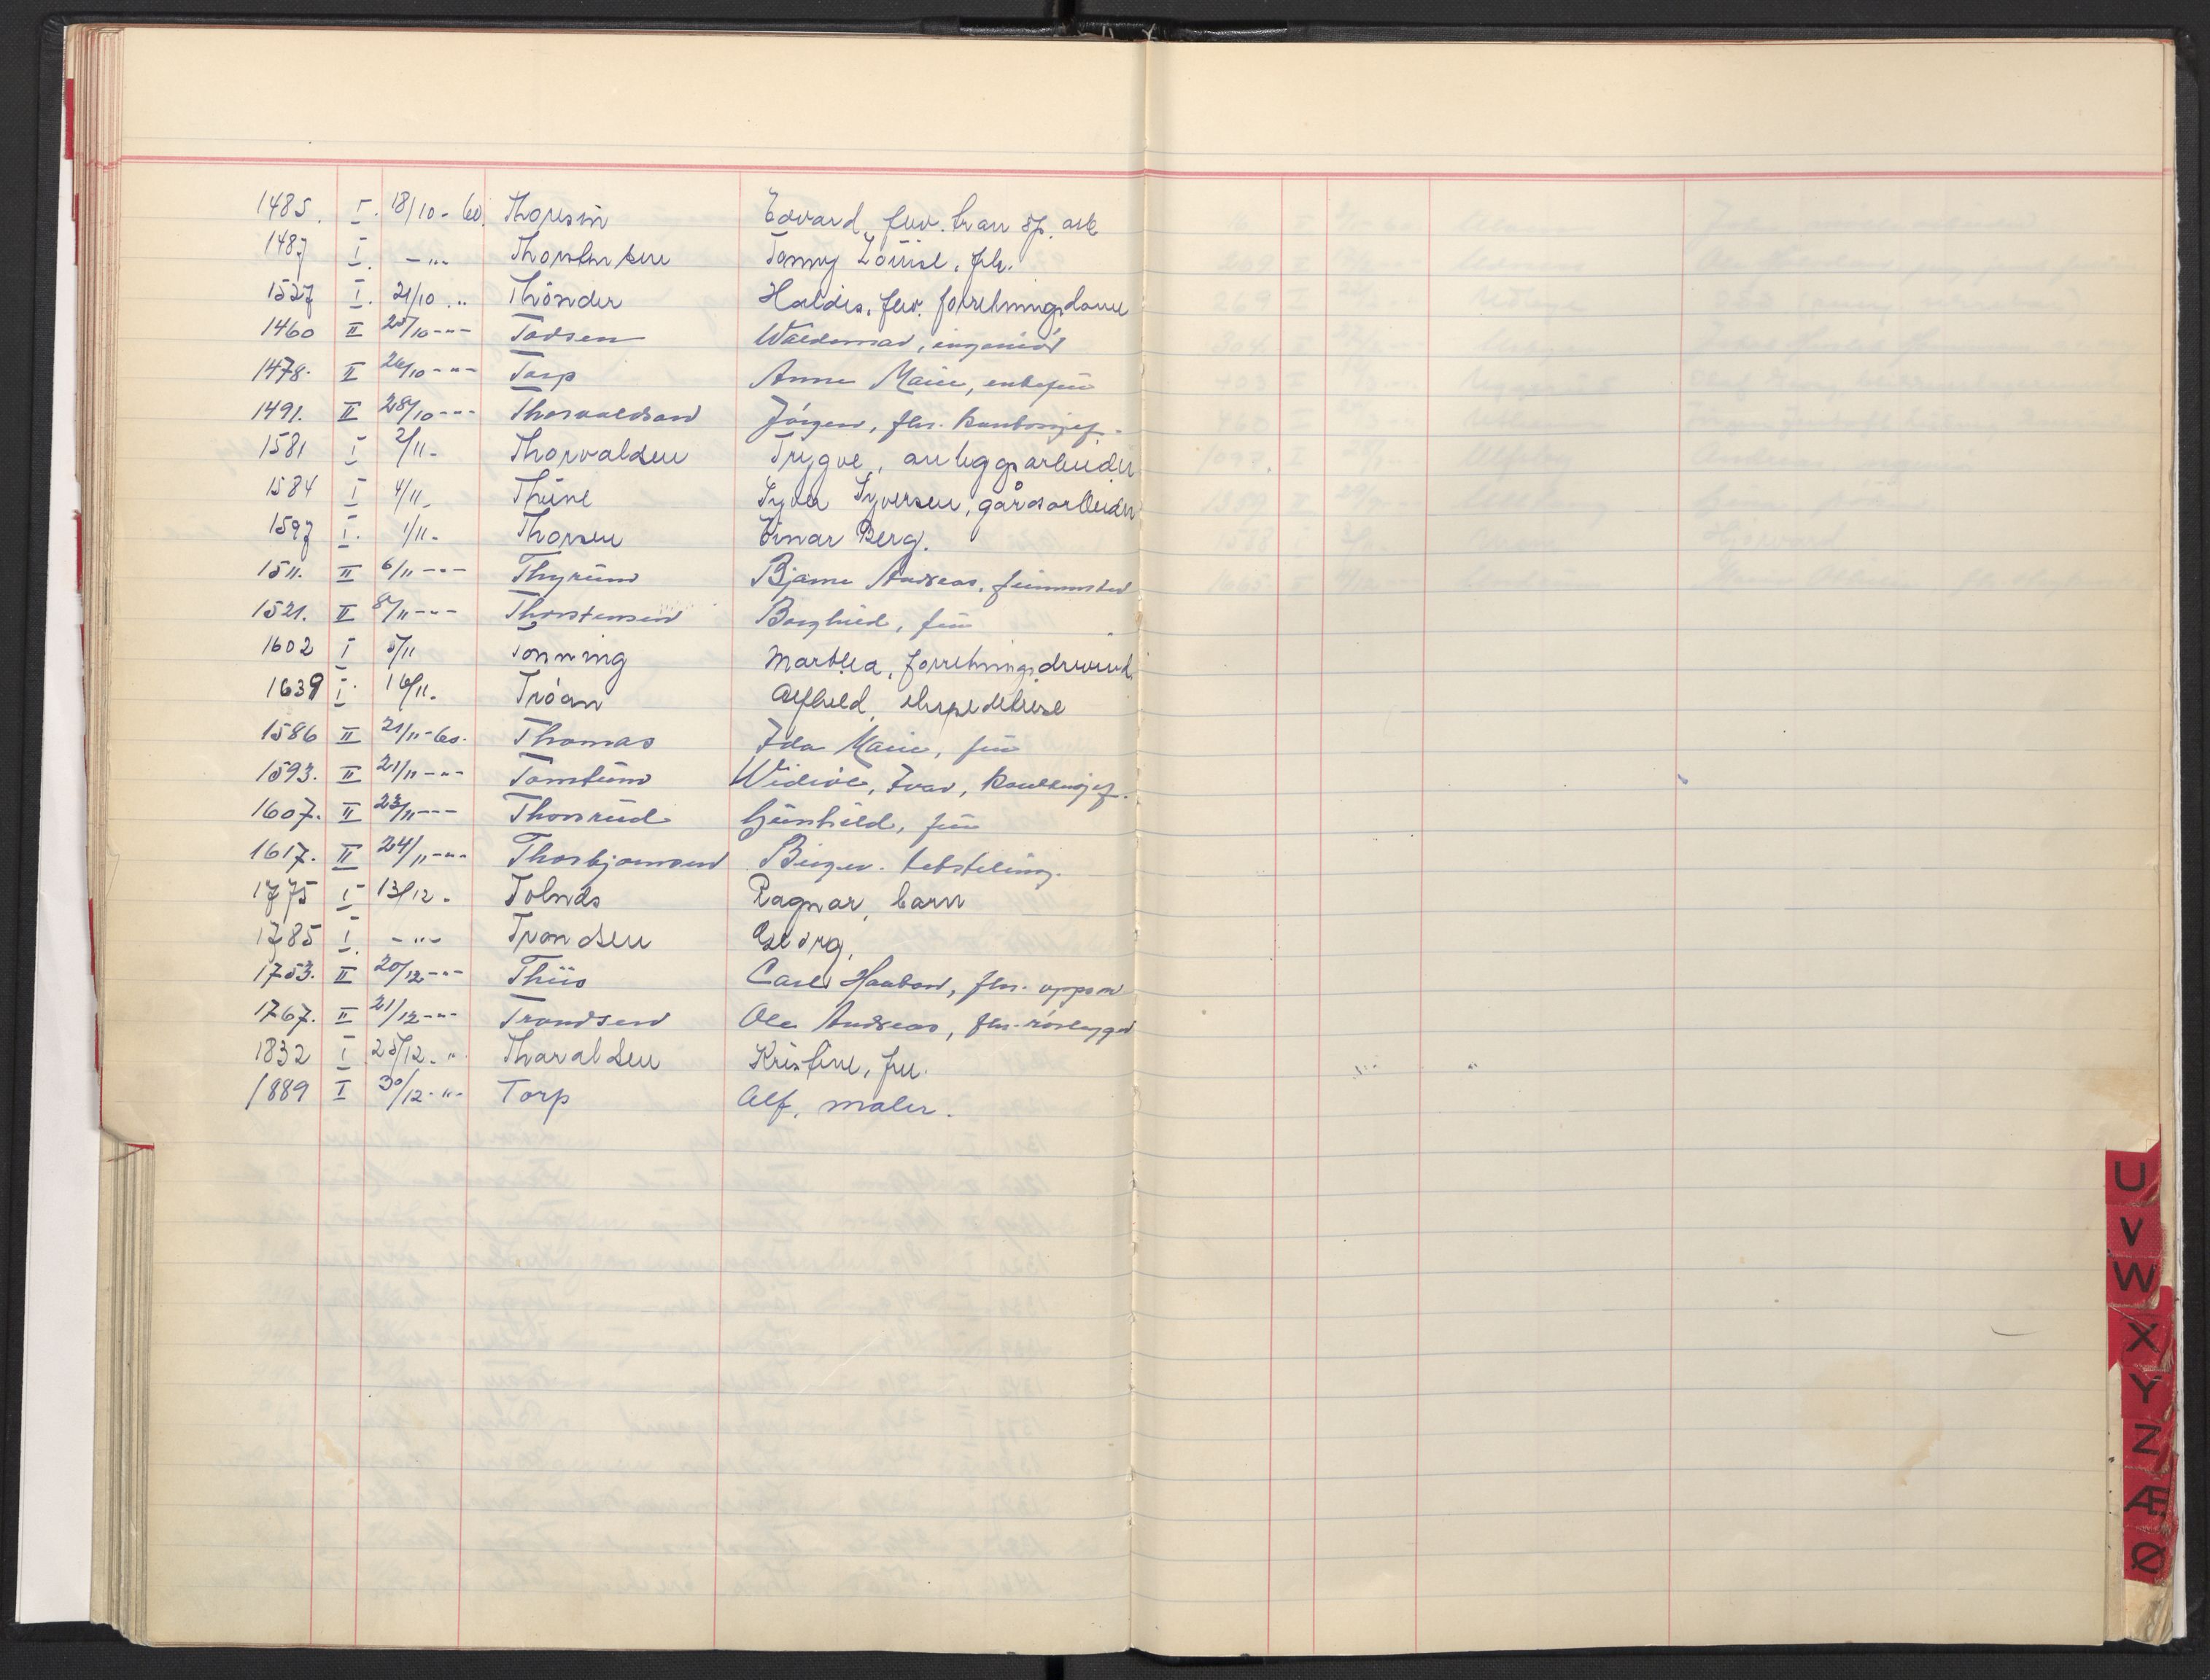 1485. I. 18/10-60. Thoresen Edvard, fhv. transp. arb
1487 I. -"- Thorstensen Tonny Louise, frk.
1527 I. 21/10 .. Thönder Haldis, fhv. forretningsdame
1460 II 25/10 -"- Todsen Waldemar, ingeniör
1478. II 26/10 -"- Torp Anne Marie, enkefru
1491. II 28/10 -"- Thorvaldsen Jörgen, fhv. kontorsjef.
1581 I 2/11- Thorvaldsen Trygve, anleggsarbeider
1584 I 4/11- Thune Syver Syversen, gårdsarbeider
1597 I. 1/11- Thorsen Einar Berg.
1511. II 6/11 -"- Thyrum Bjarne Andreas,
1521. II 8/11 -"- Thorstensen Borghild, fru
1602 I 5/11 Tonning Marthea, forretningsdrivend.
1639 I. 16/11. Tróan Alfhild, ekspeditrise
1586 II 21/11-60. Thomas Ida Marie, fru
1593. II 21/11 -"- Tomtum Ivar, kontorsjef.
1607. II 23/11 -"- Thonrud Gunhild, fru
1617. II 24/11 -"- Thorbjörnsen Birger.
1775 I 13/12. Tolnds Ragnar, barn
1785 I. -"- Trondsen Georg,
1753. II 20/12 -"- Thiis Carl Haakon, fhv. oppsm
1767. II 21/12 -"- Trondsen Ole Andreas, fhv. rörlegger
1832 I 25/12. " Tharaldsen Kristine, fru.
1889 I 30/12-"- Torp Alf, maler.
U
V
W
X
Y
Z
Æ
Ø